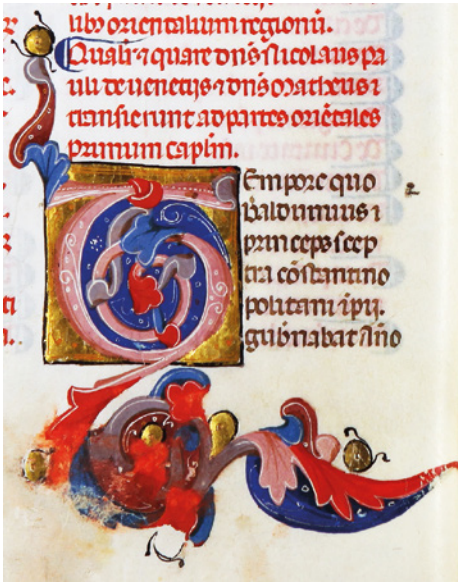 libro orientalium regionū.
Qualit̄ ⁊ quare dn̄s Nicolaus pa
uli de venetijs ⁊ dn̄s Matheus ⁊
transierunt ad partes oriētales
primum caplm̄.
Tempore quo
Balduinus ⁊
princeps scep
tra cōstantino
politani ip̄ij.
gubn̄abat año